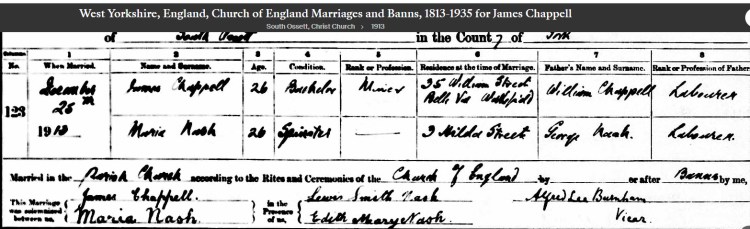 West Yorkshire, England, Church of England Marriages and Banns, 1813-1935 for James Chappell
South Ossett, Christ Church > 1913
of South Ossett in the County of York
1 2 3 4 5 6 7 8
No. When Married. Name and Surname. Age. Condition. Rank or Profession. Residence at the time of Marriage. Father's Name and Surname. Rank or Profession of Father
123 December 25th 1913 James Chappell 26 Bachelor Miner 35 William Street William Chappell Labourer
Maria Nash 26 Spinster — 3 Hilda Street George Nash. Labourer.
Married in the Parish Church according to the Rites and Ceremonies of the Church of England by or after Banns by me,
This Marriage was solemnized between us, James Chappell. in the Presence of us, Lewis Smith Nash Alfred Lee Burnham
Maria Nash. Edith Mary Nash. Vicar.